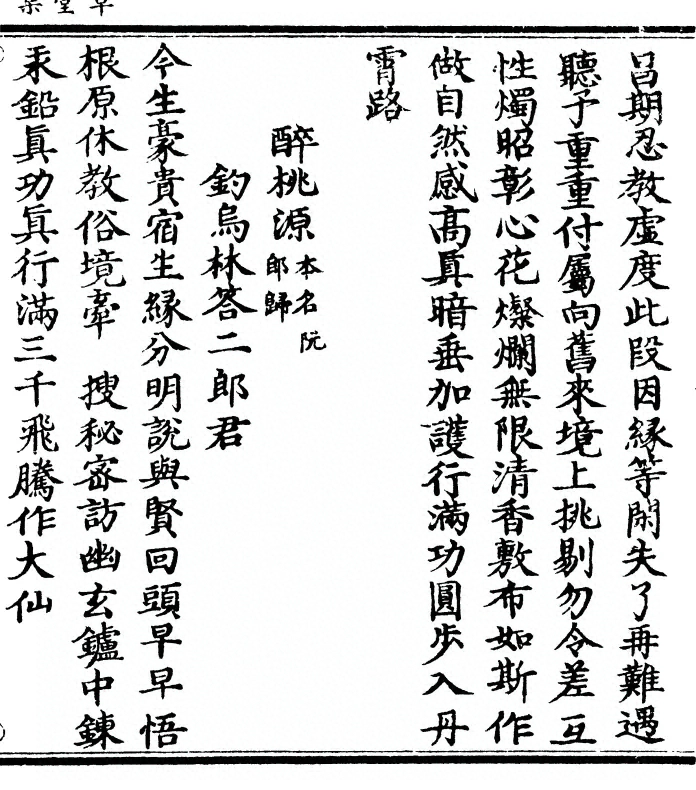 呂期忍教虛度此段因緣等閑失了再難遇
聽予重重付屬向舊來境上挑剔勿令差互
性燭昭彰心花燦爛無限清香敷布如斯作
做自然感高眞暗垂加護行滿功圓步入丹
霄路
醉桃源本名阮郎歸
釣烏林答二郎君
今生豪貴宿生緣分明說與賢回頭早早悟
根原休教俗境牽　搜秘密訪幽玄鑪中鍊
汞鉛眞功眞行滿三千飛騰作大仙